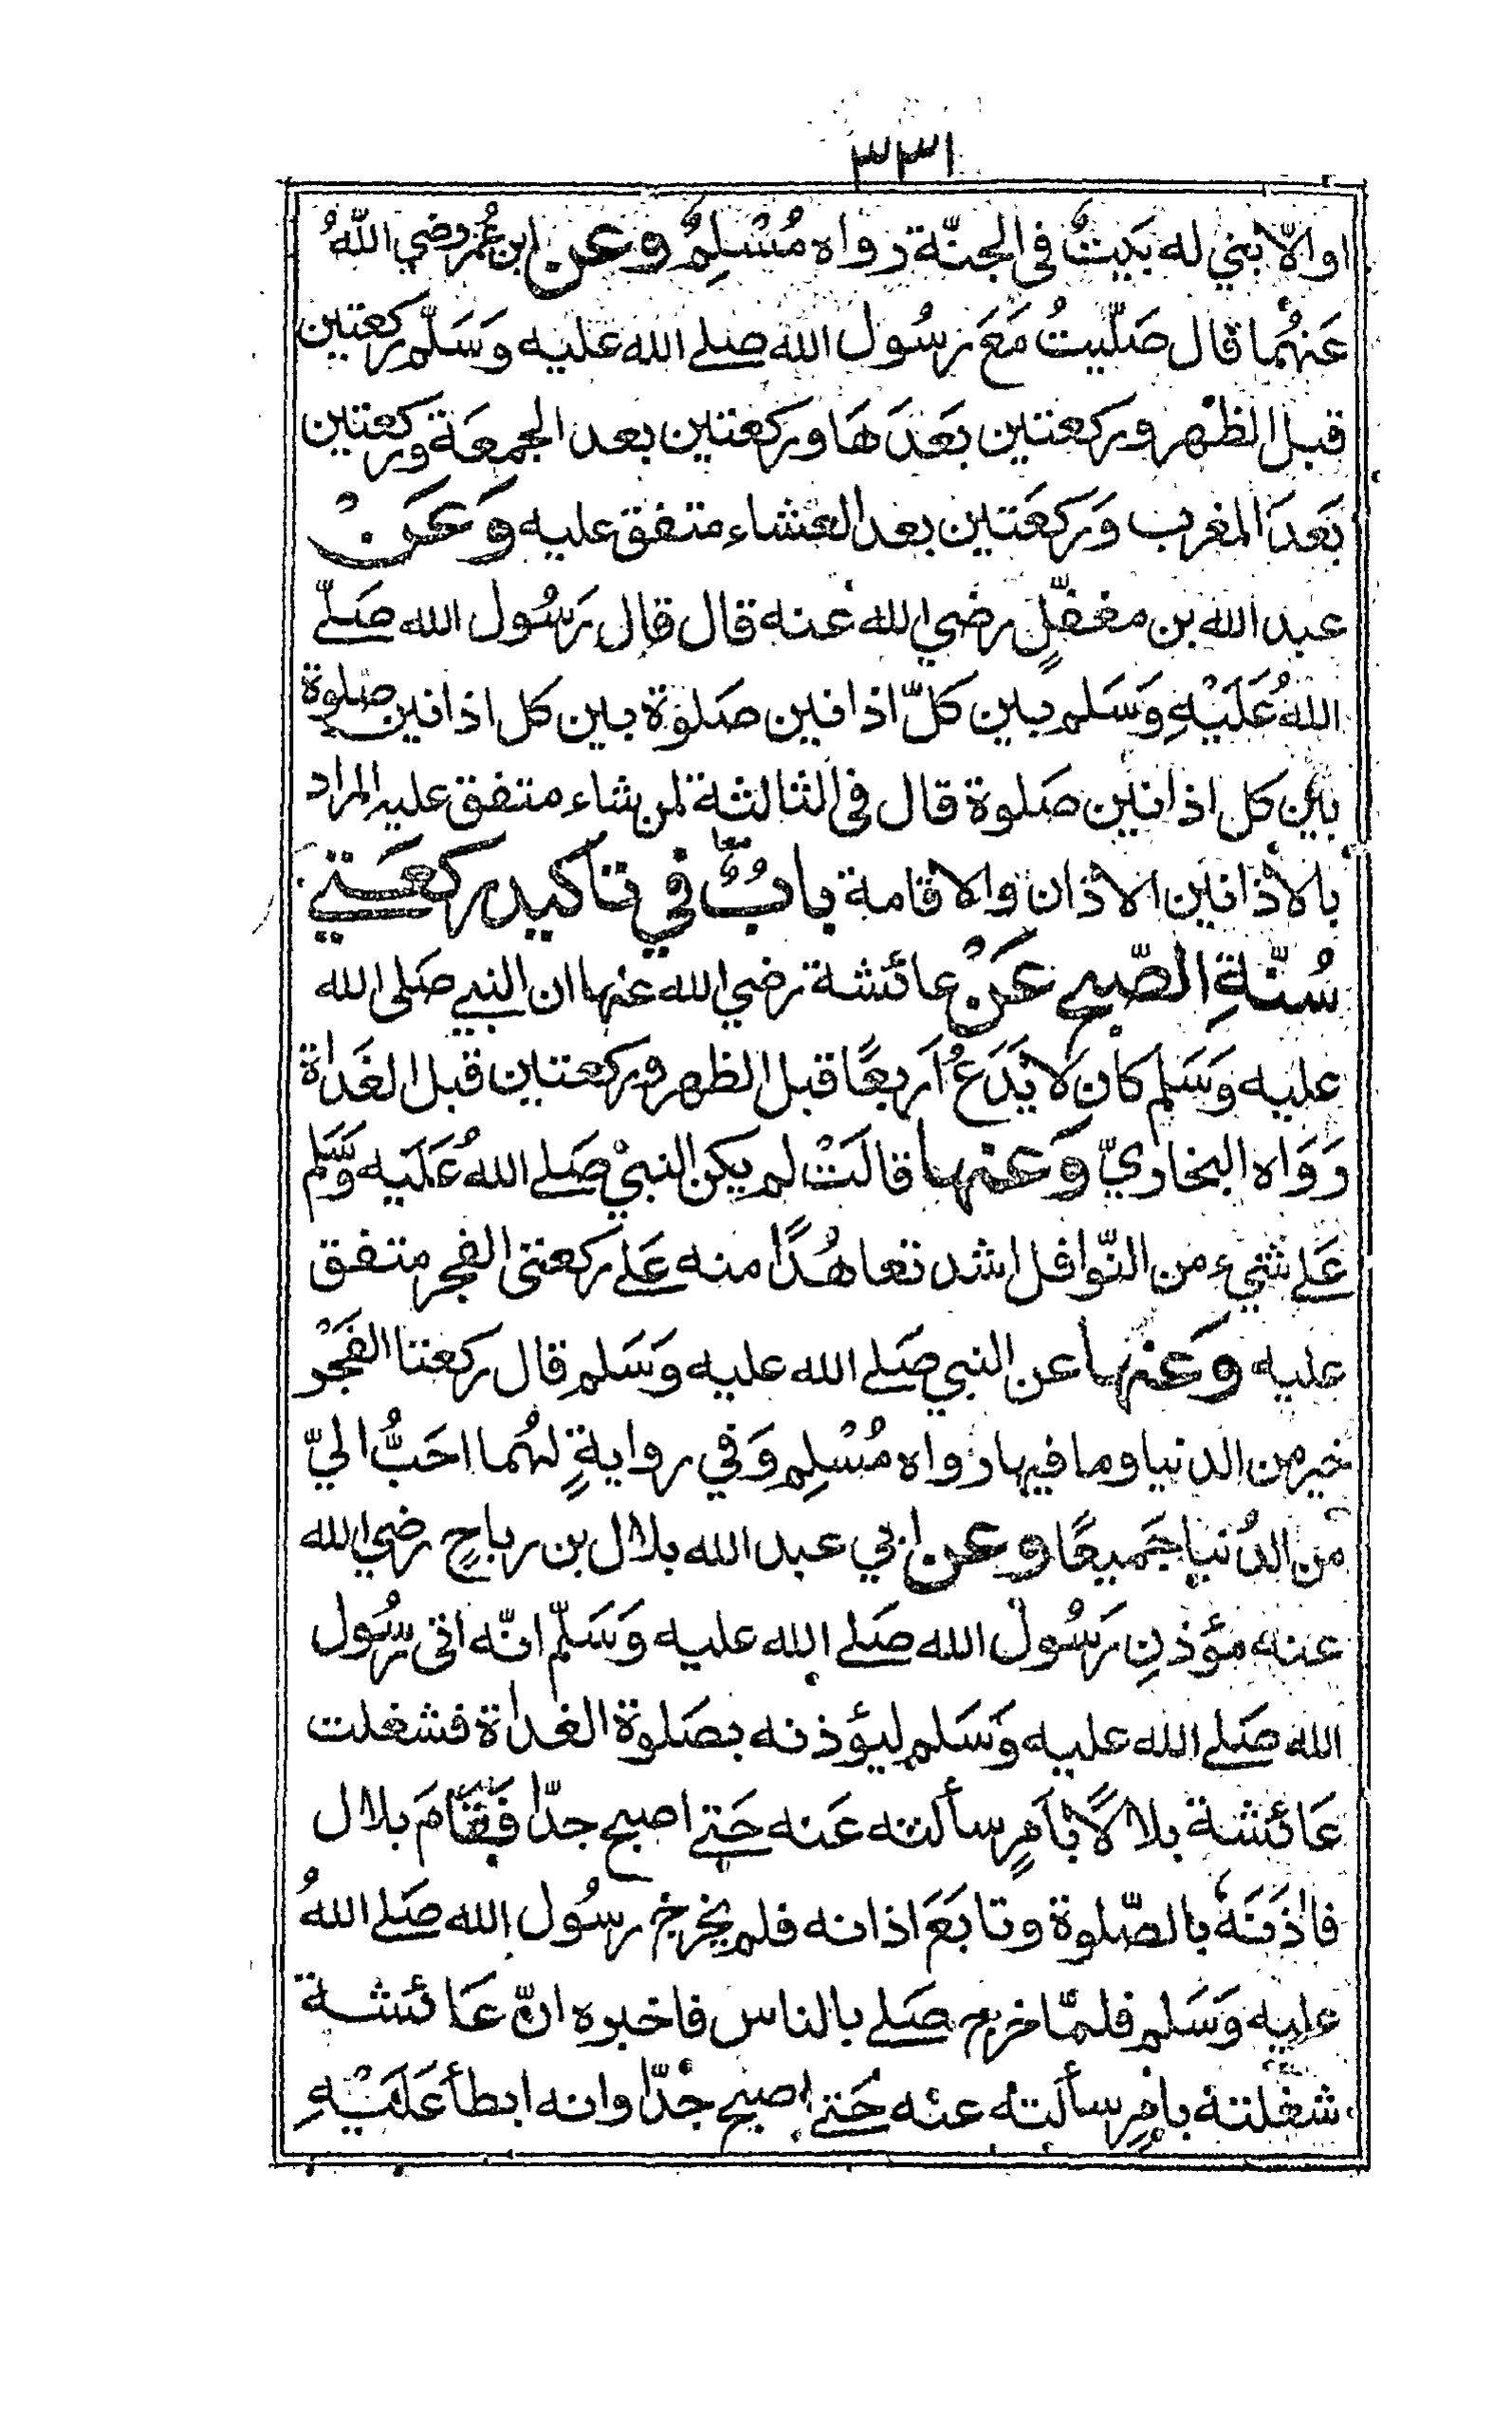 ٣٣١
اوالّا بني له بَيتٌ في الجنّة رواه مُسْلِمٌ وعن ابن عُمَر رضي اللّهُ
عَنهُما قال صَلّيتُ مَعَ رسُول الله صلے الله عليه وَسَلَّم ركعتين
قبل الظهر وركعتين بَعَدَهَا وركعتين بعد الجمعَة وركعتين
بَعدَ المغرب وَركعَتين بعد العشاء متفق عليه وَعَنْ
عبد الله بن مغفّلٍ رضي الله عنه قال قال رَسُول الله صَلّے
اللهُ عَلَيْهِ وَسَلم بين كلّ اذانين صَلوة بين كل اذانين صلوة
بين كل اذانين صَلوة قال في الثالثة لمن شاء متفق عليه المراد
بالأذانين الاذان والاقامة بابٌ في تاكيد ركعَتي
سُنّةِ الصّبح عَنْ عائشة رضي الله عنها ان النبي صَلى الله
عليه وَسَلم كان لا يَدَعُ اَربعًا قبل الظهر وركعتين قبل الغَداة
رَوَاه البخاريّ وَعنها قالَتْ لم يكن النبيْ صَلے اللهُ عَلَيه وَسَّلم
عَلے شيء من النّوافل اشد تعاهُدًا منه عَلے ركعتى الفجر متفق
عليه وَعنها عن النبي صَلے الله عليه وَسَلم قال ركعتا الفَجْر
خير من الدنيا وما فيها رواه مُسْلِم وَفي روايةٍ لهُما احَبُّ اليّ
من الدُنيا جَميعًا وعن ابي عبد الله بلال بن رباحٍ رضي الله
عنه مؤذنِ رَسُول الله صَلے الله عليه وَسَلّم انّه اتى رسُول
الله صَلے الله عليه وَسَلم ليؤذنه بصَلوة الغداة فشغلت
عَائشة بلالاً بأَمرٍ سألته عَنه حَتے اصبح جدّا فَقَامَ بلال
فاذَنَهُ بالصّلوة وتابَعَ اذانه فلم يخرج رسُول الله صَلے اللهُ
عليه وَسَلم فلمّا خرج صَلے بالناس فاخبره انّ عَائشة
شغلته بامرٍ سألته عنه حَتے اصبح جدّا وانه ابطأ عَلَيْهِ